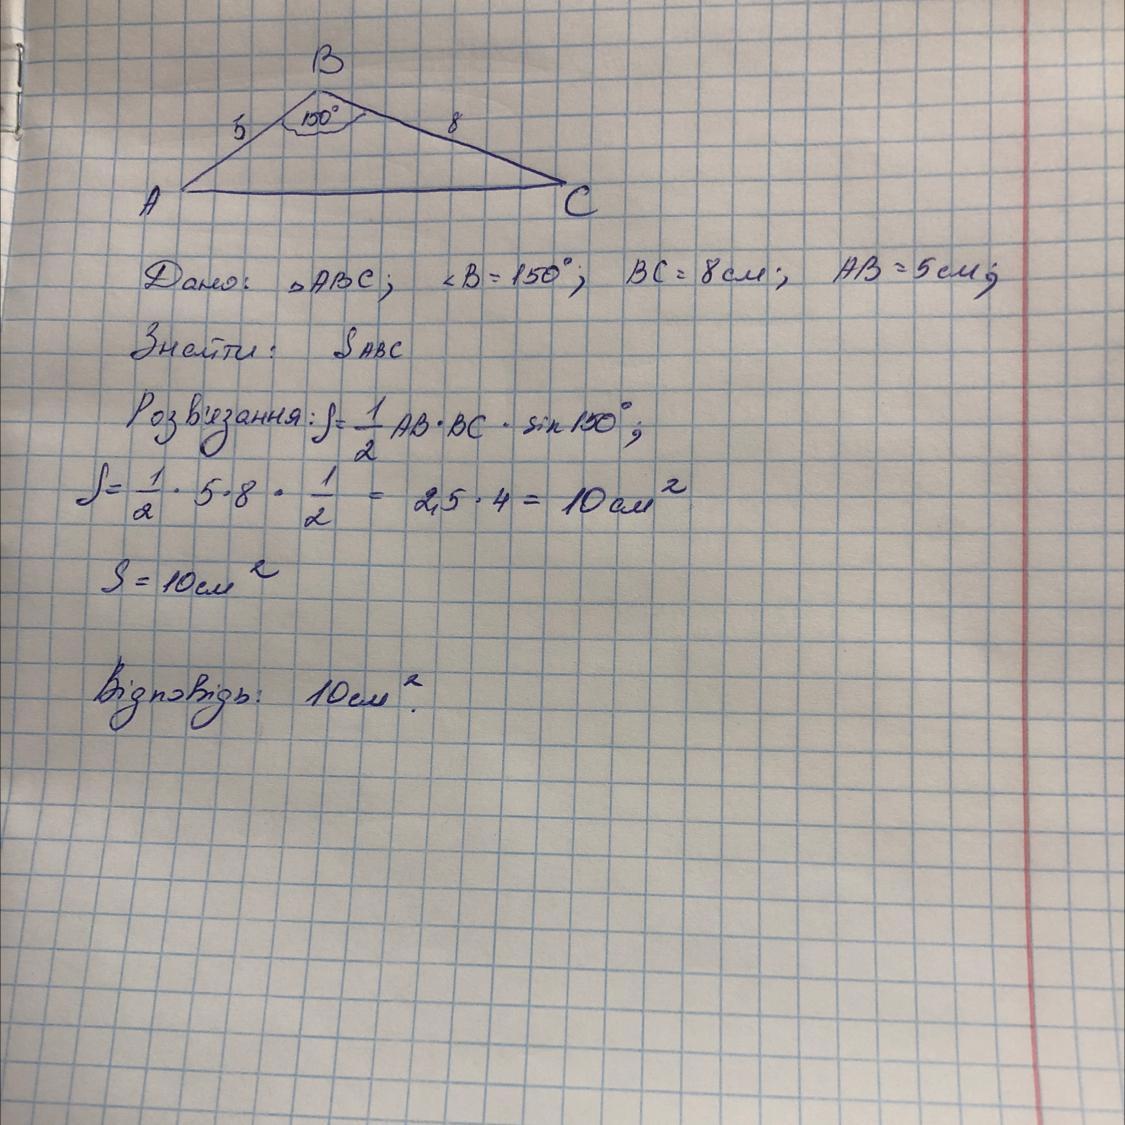 B
5 150° 8
A C
Дано: △ABC; ∠B = 150°; BC = 8 см; AB = 5 см;
Знайти: S ABC
Розв'язання: S = 1/2 AB · BC · sin 150°;
S = 1/2 · 5 · 8 · 1/2 = 2,5 · 4 = 10 см²
S = 10 см²
Відповідь: 10 см².